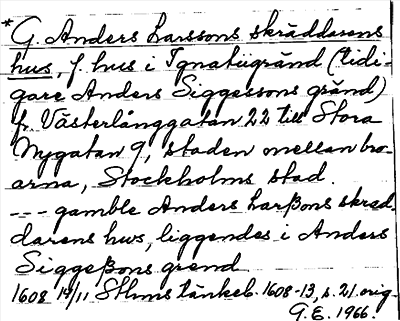 *G. Anders Larssons skräddarens
hus, f. hus i Ignatiigränd (tidi-
gare Anders Siggessons gränd)
fr. Västerlånggatan 22 till Stora
Nygatan 9, staden mellan bro-
arna, Stockholms stad.
--- gamble Anders Larßons skräd-
darens hws, liggendes i Anders
Siggeßons grend
1608 14/11 Sthms tänkeb. 1608-13, s. 21. orig.
G.E. 1966.